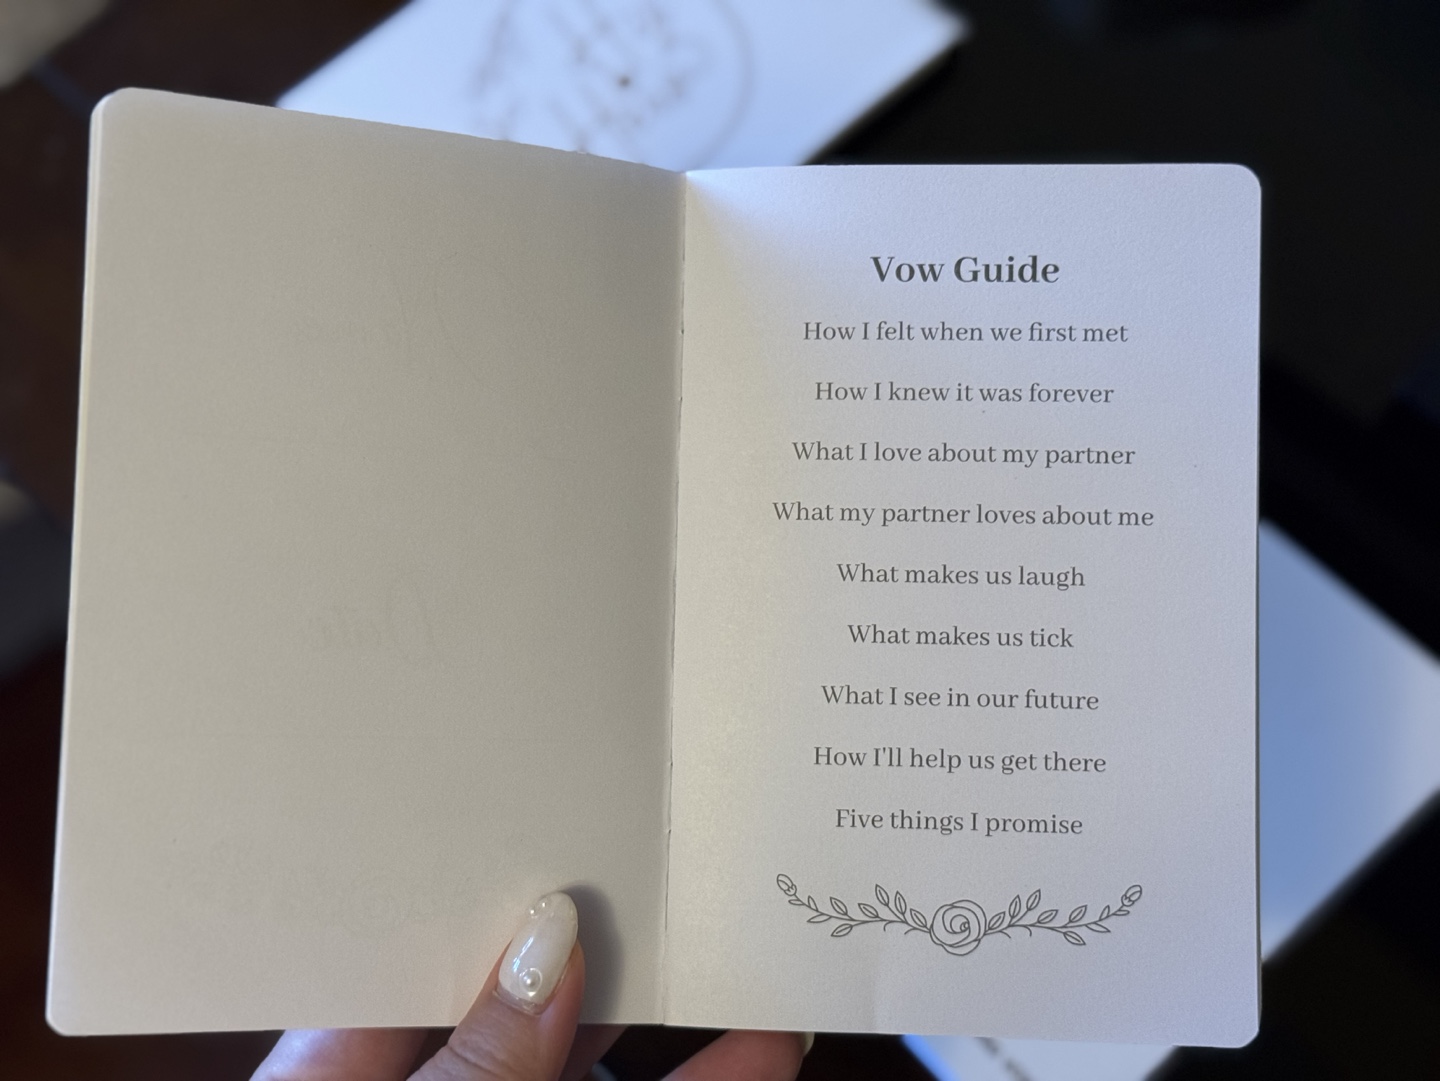 Vow Guide
How I felt when we first met
How I knew it was forever
What I love about my partner
What my partner loves about me
What makes us laugh
What makes us tick
What I see in our future
How I'll help us get there
Five things I promise